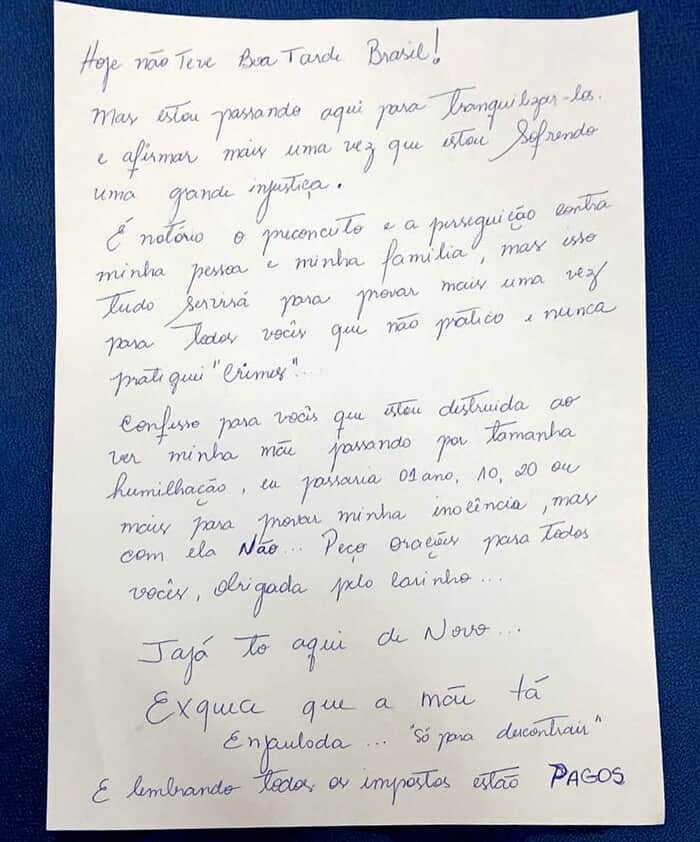 Hoje não Teve Boa Tarde Brasil!
Mas estou passando aqui para Tranquilizar-los.
e afirmar mais uma vez que estou Sofrendo
uma grande injustiça.
É notório o preconceito e a perseguição contra
minha pessoa e minha família, mas isso
Tudo servirá para provar mais uma vez
para Todos vocês que não pratico e nunca
pratiquei "Crimes"...
Confesso para vocês que estou destruida ao
ver minha mãe passando por tamanha
humilhação, eu passaria 01 ano, 10, 20 ou
mais para provar minha inocência, mas
com ela Não... Peço orações para todos
vocês, Obrigada pelo Carinho...
Jajá to aqui de Novo...
Exquece que a mãe tá
Enjaulada... "Só para descontrair"
E lembrando todos os impostos estão PAGOS